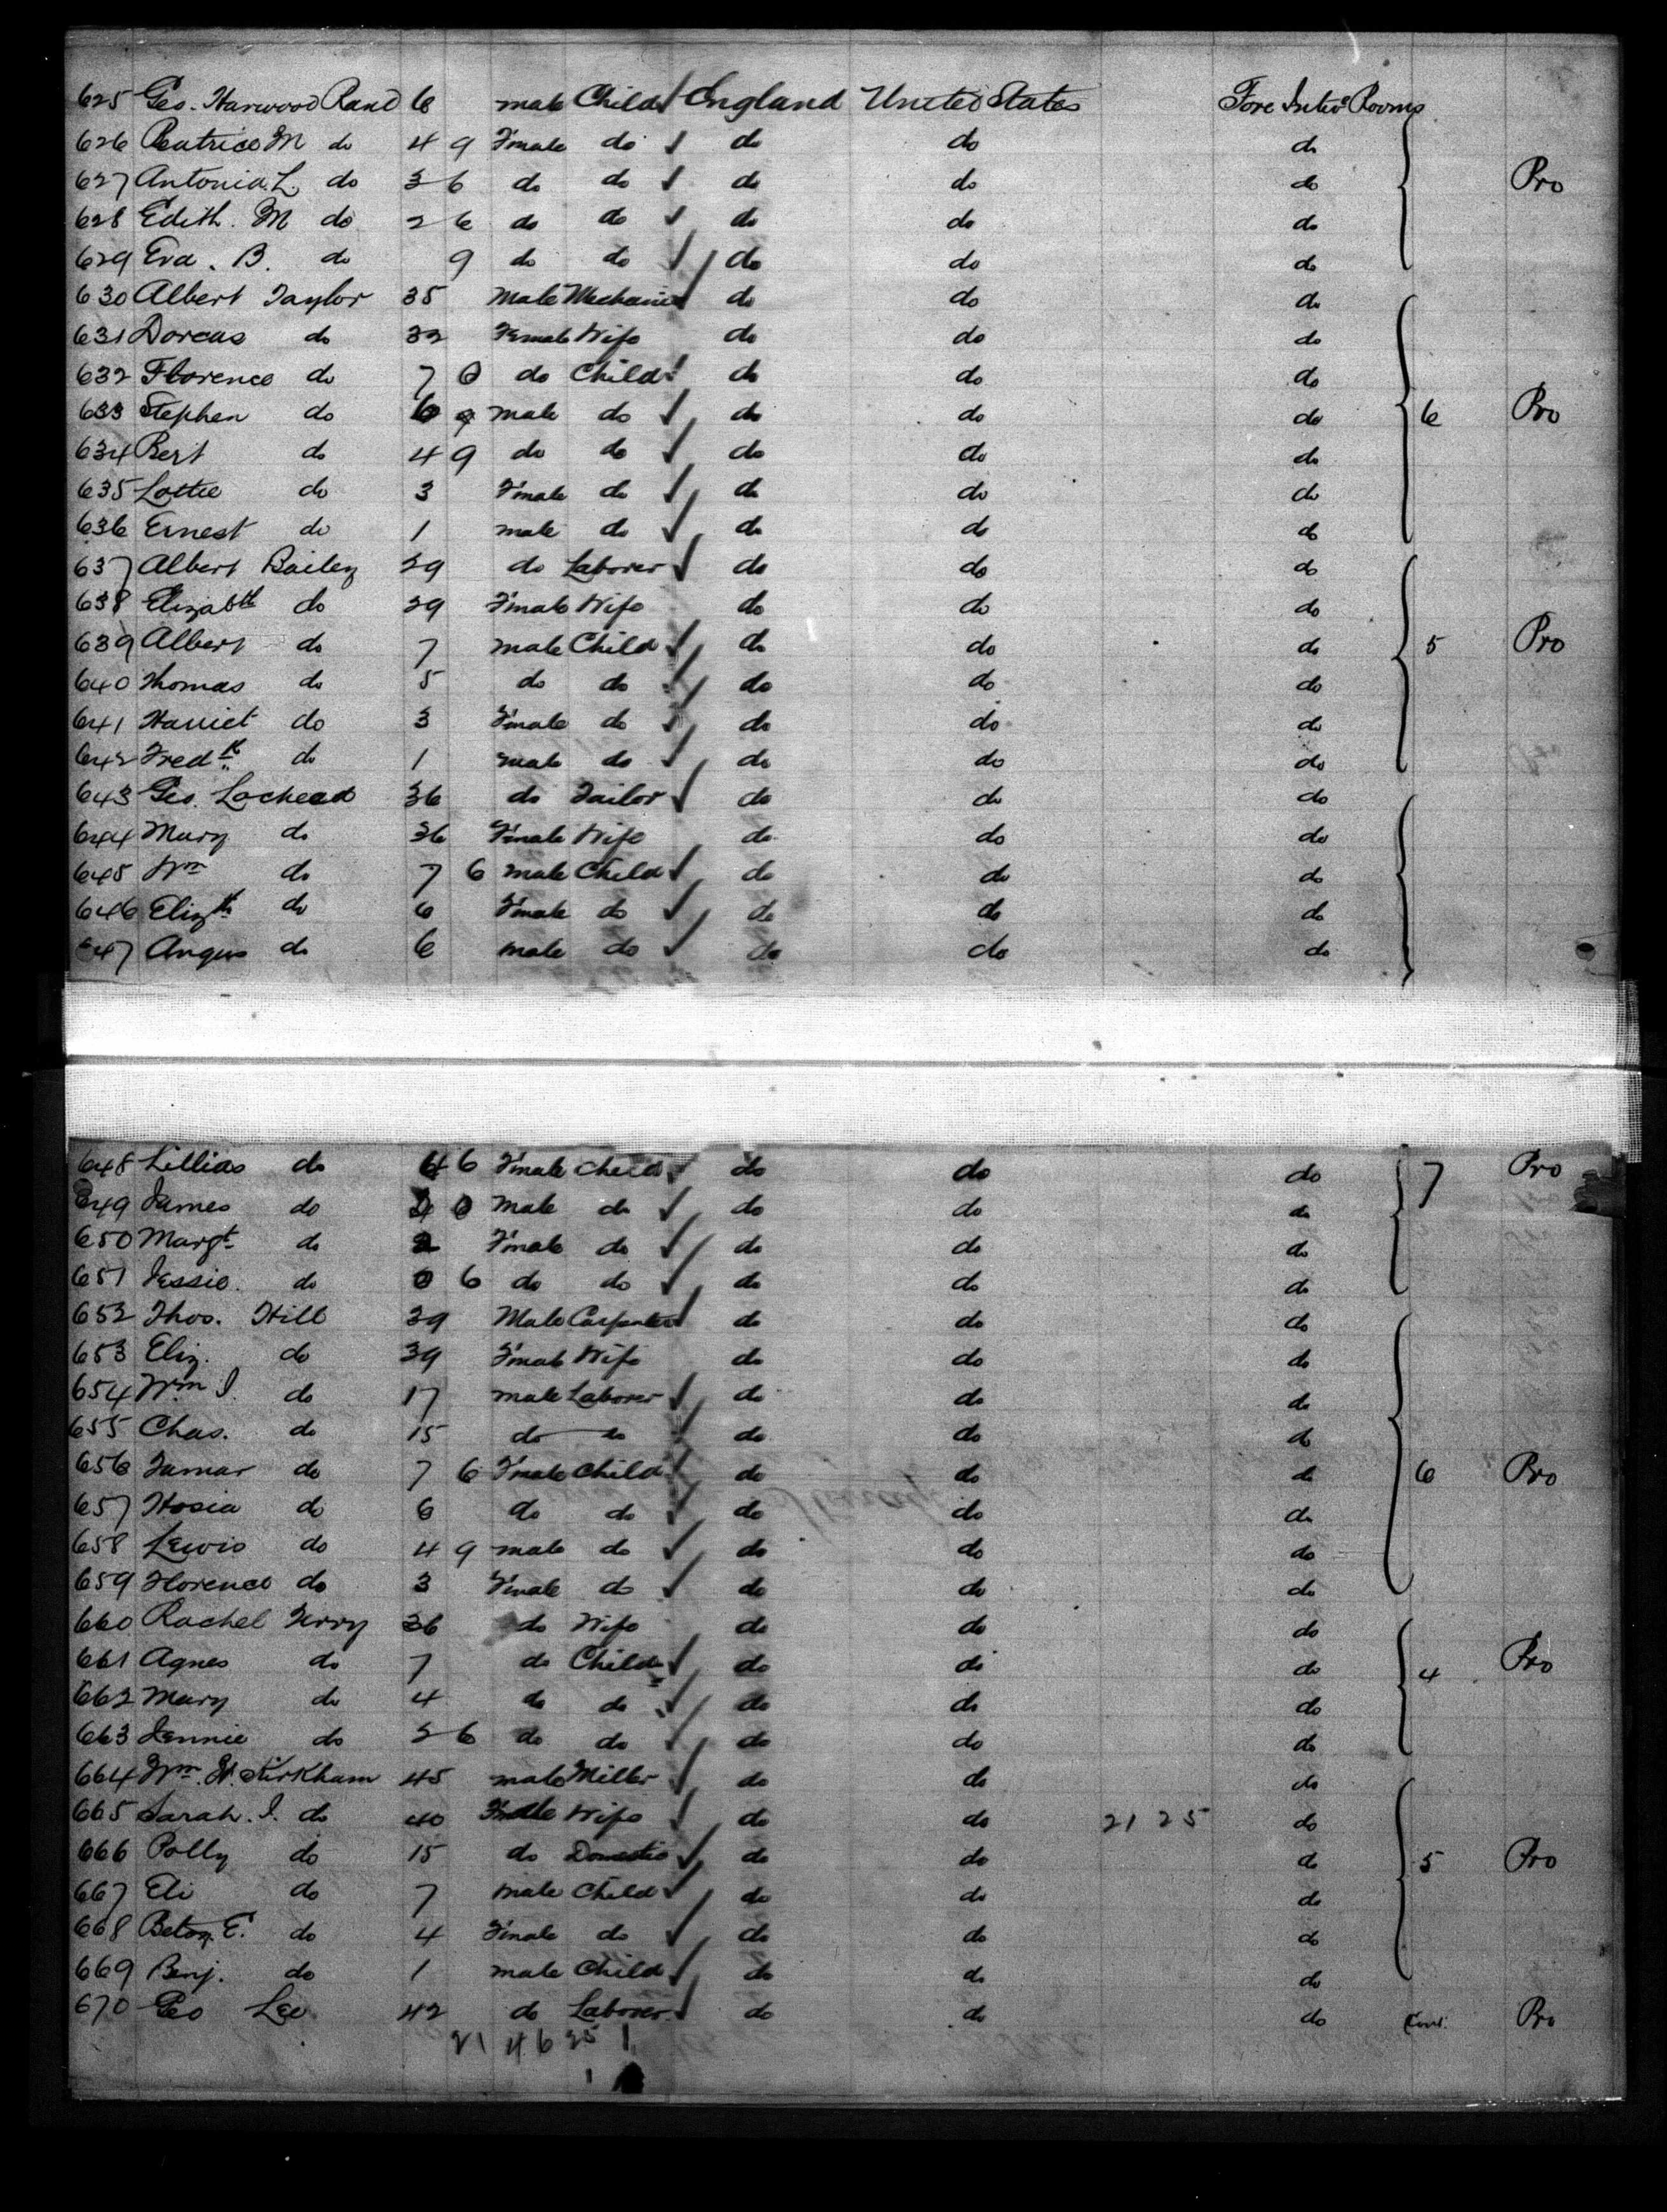 625 Geo. Harwood Rand 6 male Child England United States Fore Inter Rooms
626 Beatrice M do 4 9 Female do do do do
627 Antonia L. do 3 6 do do do do do Pro
628 Edith. M do 2 6 do do do do do
629 Eva. B. do 9 do do do do do
630 Albert Taylor 35 Male Mechanic do do do
631 Dorcas do 32 Female Wife do do do
632 Florence do 7 0 do Child do do do
633 Stephen do 6 9 male do do do do 6 Pro
634 Bert do 4 9 do do do do do
635 Lottie do 3 Female do do do do
636 Ernest do 1 male do do do do
637 Albert Bailey 29 do Laborer do do do
638 Elizabth do 29 Female Wife do do do
639 Albert do 7 male Child do do do 5 Pro
640 Thomas do 5 do do do do do
641 Harriet do 3 Female do do do do
642 Fredk do 1 male do do do do
643 Geo. Lochead 36 do Tailor do do do
644 Mary do 36 Female Wife do do do
645 Wm do 7 6 male Child do do do
646 Elizth do 6 Female do do do do
647 Angus do 6 male do do do do
648 Lillias do 4 6 Female Child do do do 7 Pro
649 James do 0 Male do do do do
650 Margt do 2 Female do do do do
651 Jessie. do 0 6 do do do do do
652 Thos. Hill 39 Male Carpenter do do do
653 Eliz. do 39 Female Wife do do do
654 Wm J. do 17 male Laborer do do do
655 Chas. do 15 do do do do do
656 Tamar do 7 6 Female Child do do do 6 Pro
657 Hosia do 6 do do do do do
658 Lewis do 4 9 male do do do do
659 Florence do 3 Female do do do do
660 Rachel Terry 36 do Wife do do do
661 Agnes do 7 do Child do do do 4 Pro
662 Mary do 4 do do do do do
663 Jennie do 2 6 do do do do do
664 Wm. H. Kirkham 45 male Miller do do do
665 Sarah. J. do 40 Female Wife do do 21 25 do
666 Polly do 15 do Domestic do do do 5 Pro
667 Eli do 7 male Child do do do
668 Betsy E. do 4 Female do do do do
669 Benj. do 1 male Child do do do
670 Geo Lee 42 do Laborer do do do Cont. Pro
21 46 25 1
1